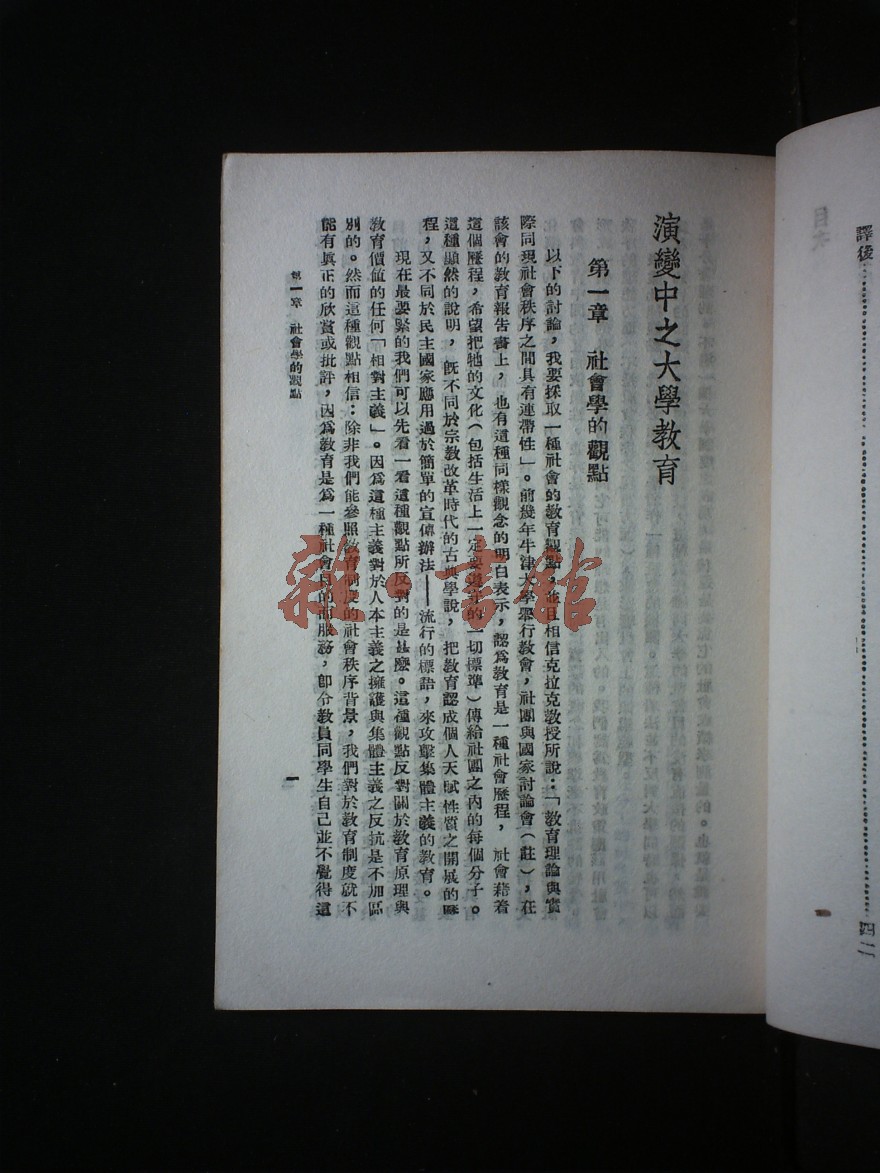 譯後……四二
演變中之大學教育
第一章　社會學的觀點
以下的討論，我要採取一種社會的教育觀點，並且相信克拉克教授所說：「教育理論與實
際同現社會秩序之間具有連帶性」。前幾年牛津大學舉行教會，社團與國家討論會（註），在
該會的教育報告書上，也有這種同樣觀念的明白表示，認爲教育是一種社會歷程，社會藉着
這個歷程，希望把牠的文化（包括生活上一定要遵守的一切標準）傳給社團之內的每個分子。
這種顯然的說明，旣不同於宗教改革時代的古典學說，把教育認成個人天賦性質之開展的歷
程，又不同於民主國家應用過於簡單的宣傳辦法——流行的標語，來攻擊集體主義的教育。
現在最要緊的我們可以先看一看這種觀點所反對的是甚麼。這種觀點反對關於教育原理與
教育價值的任何「相對主義」。因爲這種主義對於人本主義之擁護與集體主義之反抗是不加區
別的。然而這種觀點相信：除非我們能參照教育制度的社會秩序背景，我們對於教育制度就不
能有眞正的欣賞或批評，因爲教育是爲一種社會目的而服務，卽令教員同學生自己並不覺得這
第一章　社會學的觀點
一
雜·書館